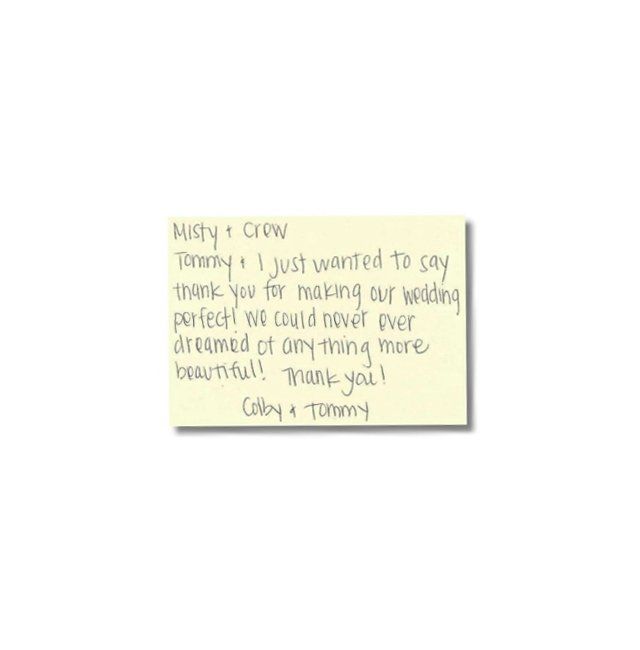 Misty + Crew
Tommy + I just wanted to say
thank you for making our wedding
perfect! We could never ever
dreamed of anything more
beautiful! Thank you!
Colby + Tommy